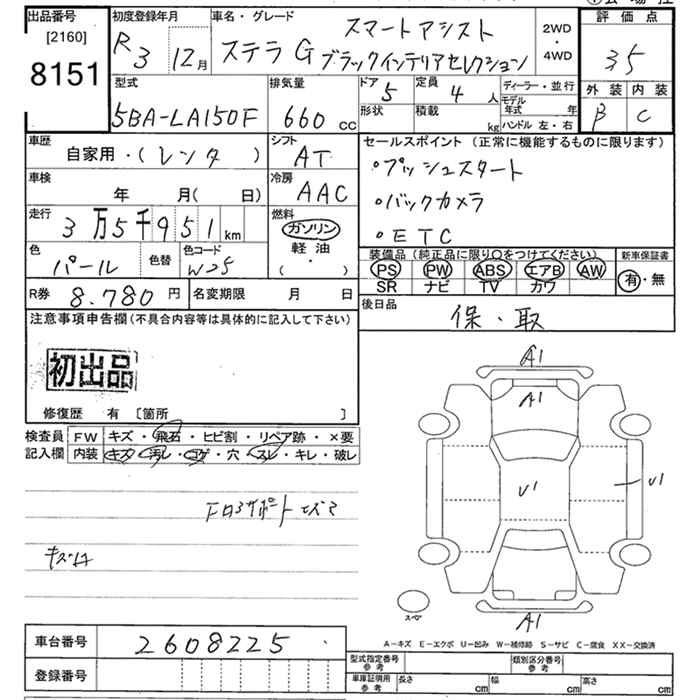 出品番号
[2160]
8151
初度登録年月
R3 12月
車名・グレード
スマートアシスト
ステラ G ブラックインテリアセレクション
2WD
・
4WD
評価点
3.5
外装 内装
B C
型式
5BA-LA150F
排気量
660 cc
ドア 5
形状
定員 4 人
積載 kg
ディーラー・並行
モデル年式 年
ハンドル 左・右
車歴
自家用・(レンタ)
シフト
AT
車検
年 月(日)
冷房
AAC
走行
3万5千951 km
燃料
ガソリン
軽油
(・)
色
パール
色替
色コード
W25
R券 8.780円
名変期限 月 日
セールスポイント (正常に機能するものに限ります)
・プッシュスタート
・バックカメラ
・ETC
装備品(純正品に限り○をつけてください)
PS PW ABS エアB AW
SR ナビ TV カワ
新車保証書
有・無
後日品
保・取
注意事項申告欄(不具合内容等は具体的に記入して下さい)
初出品
修復歴 有 [箇所 ]
検査員
記入欄
FW キズ・飛石・ヒビ割・リペア跡・×要
内装 キズ・汚レ・コゲ・穴・スレ・キレ・破レ
キズ
A1
A1
U1
U1
A1
A−キズ E−エクボ U−凹み W−補修跡 S−サビ C−腐食 XX−交換済
車台番号 2608225
登録番号
型式指定番号
参考
類別区分番号
参考
車庫証明用
参考
長さ cm
幅 cm
高さ cm